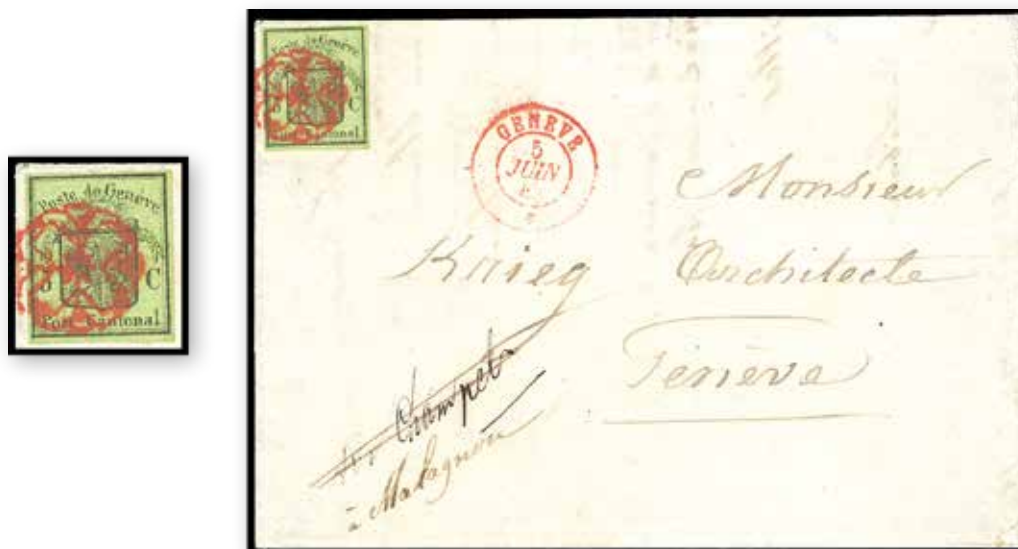 Poste de Genève
5 C
Port Cantonal
Poste de Genève
C
Port Cantonal
GENEVE
5
JUIN
Monsieur
Krieg Architecte
Genève
Champel
à Malagnou